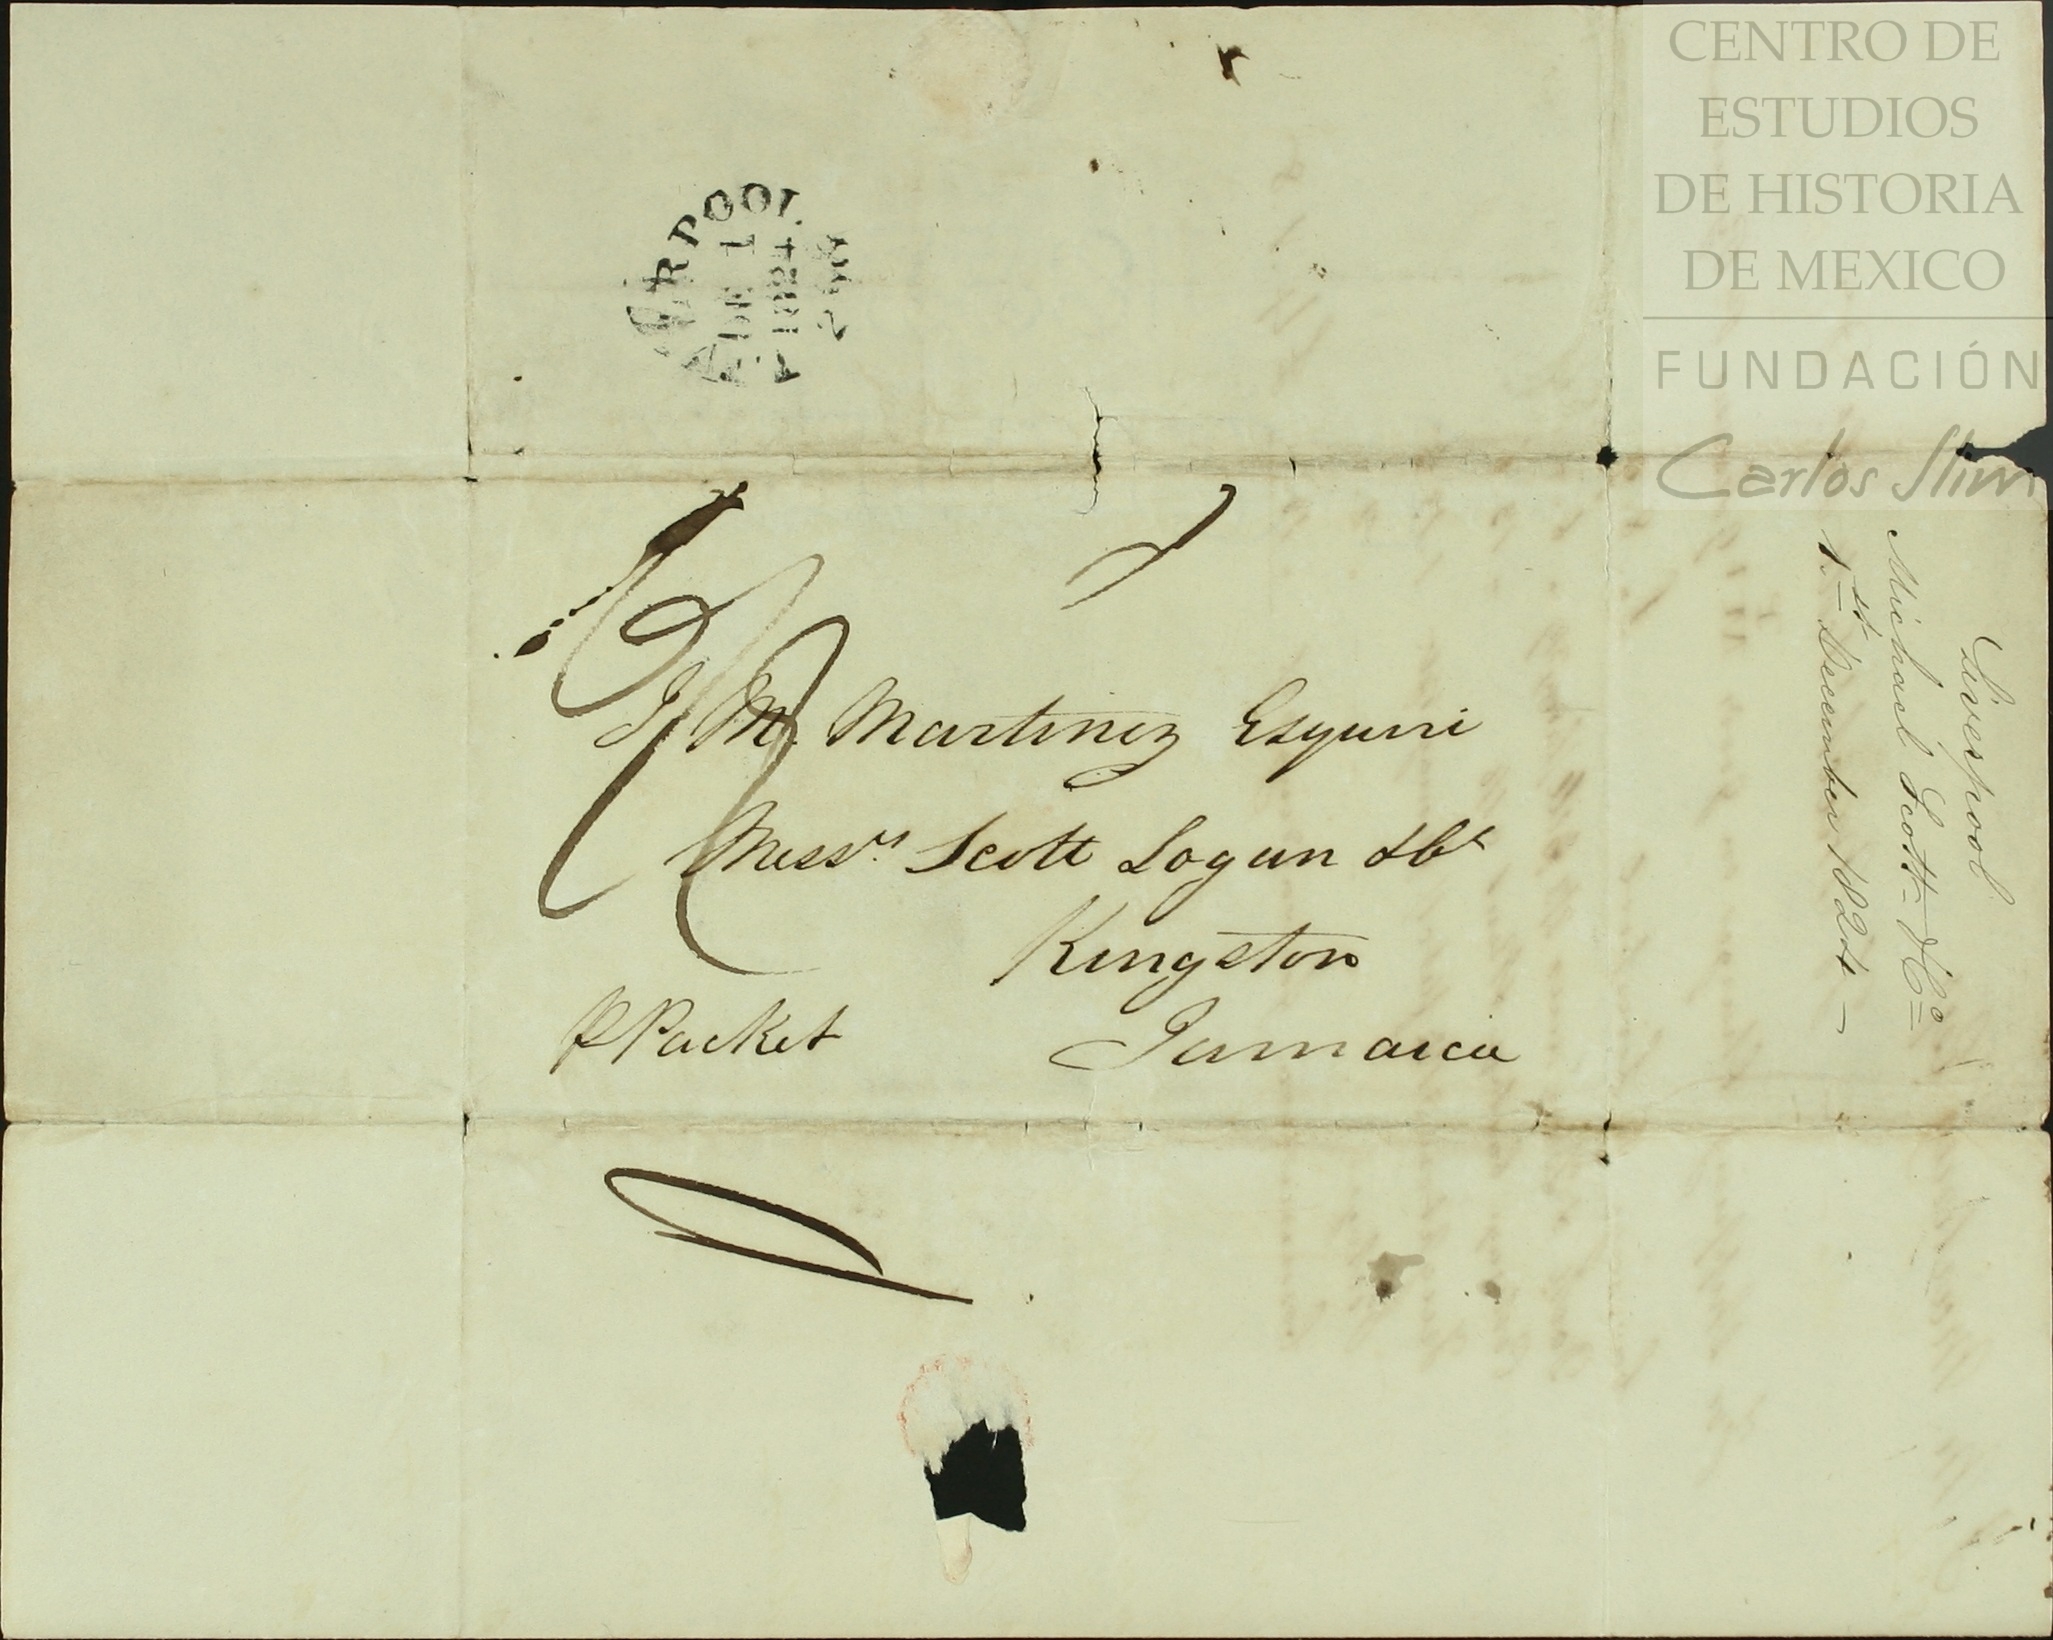 CENTRO DE
ESTUDIOS
DE HISTORIA
DE MEXICO
FUNDACIÓN
Carlos Slim
LIVERPOOL
DE 1
1824
J. M. Martinez Esquire
Messrs. Scott Logan & Co
Kingston
Jamaica
P Packet
Liverpool
Michael Scott & Co
1.st December 1824 –